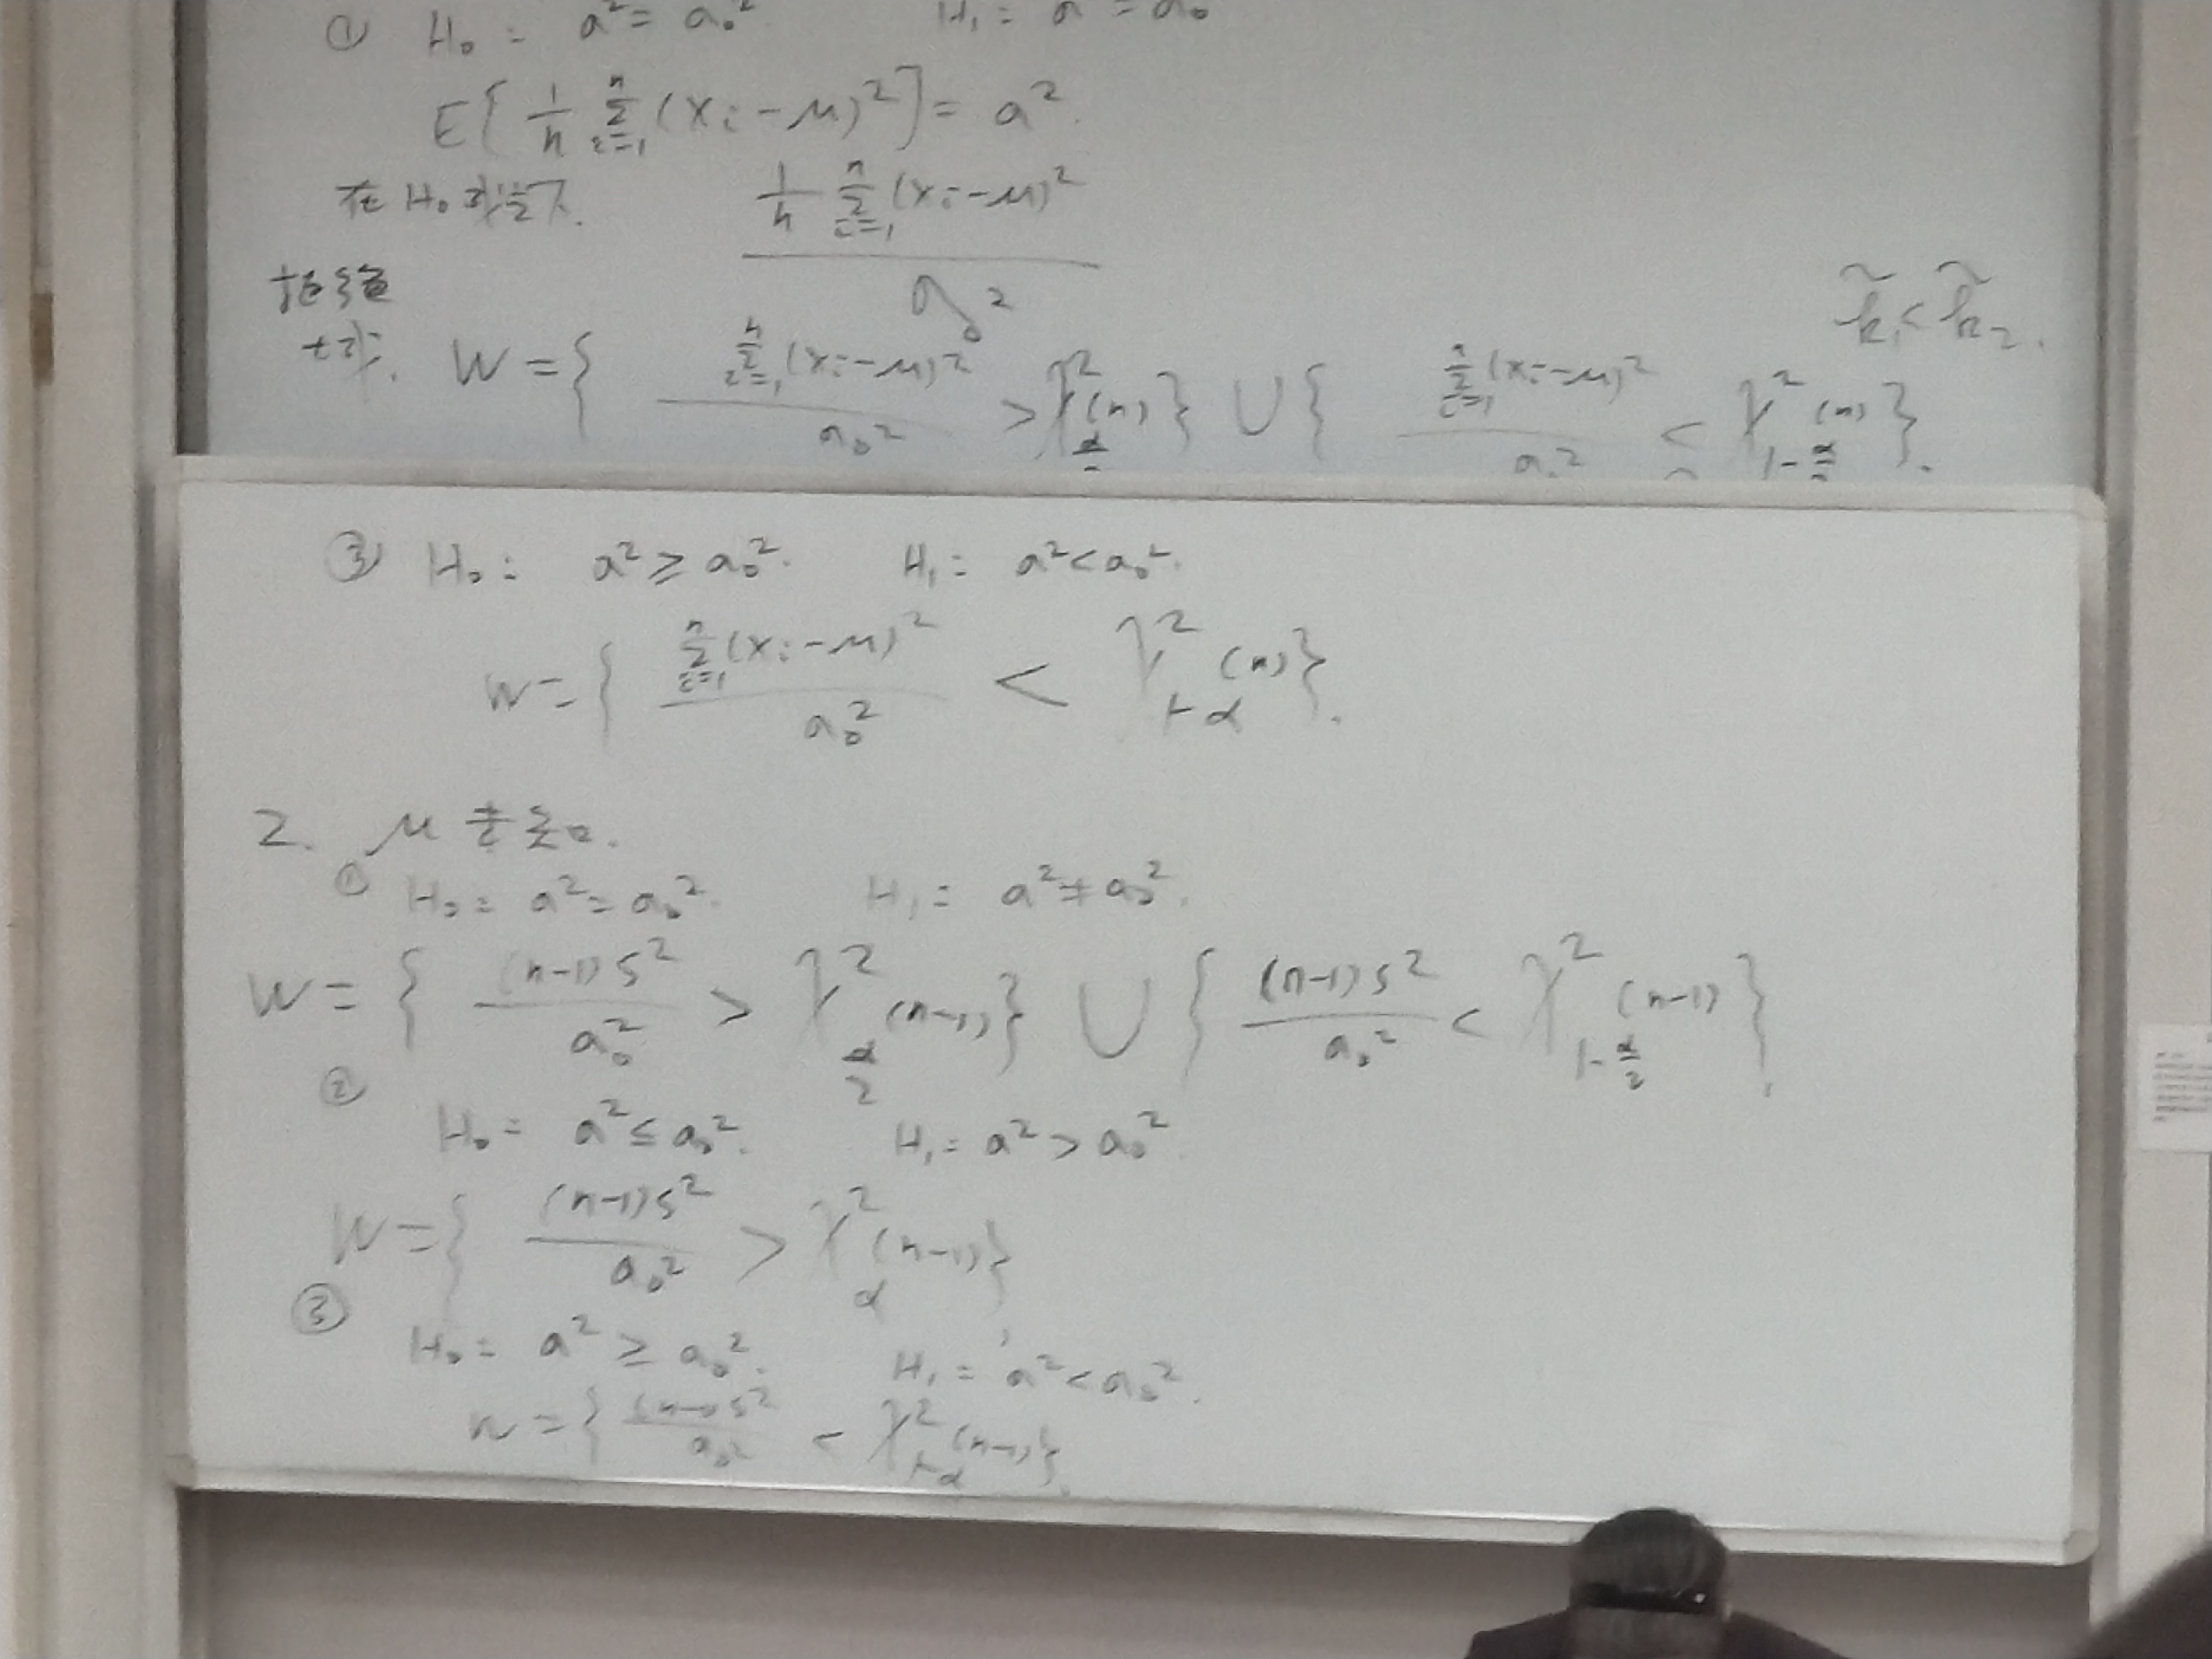 ① H₀: a² = a₀² H₁:
E[1/n Σᵢ₌₁ⁿ (Xᵢ-μ)²] = a².
在 H₀ 成立下. (1/n Σᵢ₌₁ⁿ (Xᵢ-μ)²) / a₀²
k̃₁ < k̃₂.
拒绝
域. W = { Σᵢ₌₁ⁿ (Xᵢ-μ)² / a₀² > χ²_{α/2}(n) } ∪ { Σᵢ₌₁ⁿ (Xᵢ-μ)² / a₀² < χ²_{1-α/2}(n) }.
③ H₀: a² ≥ a₀². H₁: a² < a₀².
W = { Σᵢ₌₁ⁿ (Xᵢ-μ)² / a₀² < χ²_{1-α}(n) }.
2. μ 未知.
① H₀: a² = a₀². H₁: a² ≠ a₀².
W = { (n-1)S² / a₀² > χ²_{α/2}(n-1) } ∪ { (n-1)S² / a₀² < χ²_{1-α/2}(n-1) }.
② H₀: a² ≤ a₀². H₁: a² > a₀²
W = { (n-1)S² / a₀² > χ²_α(n-1) }
③ H₀: a² ≥ a₀². H₁: a² < a₀².
W = { (n-1)S² / a₀² < χ²_{1-α}(n-1) }.